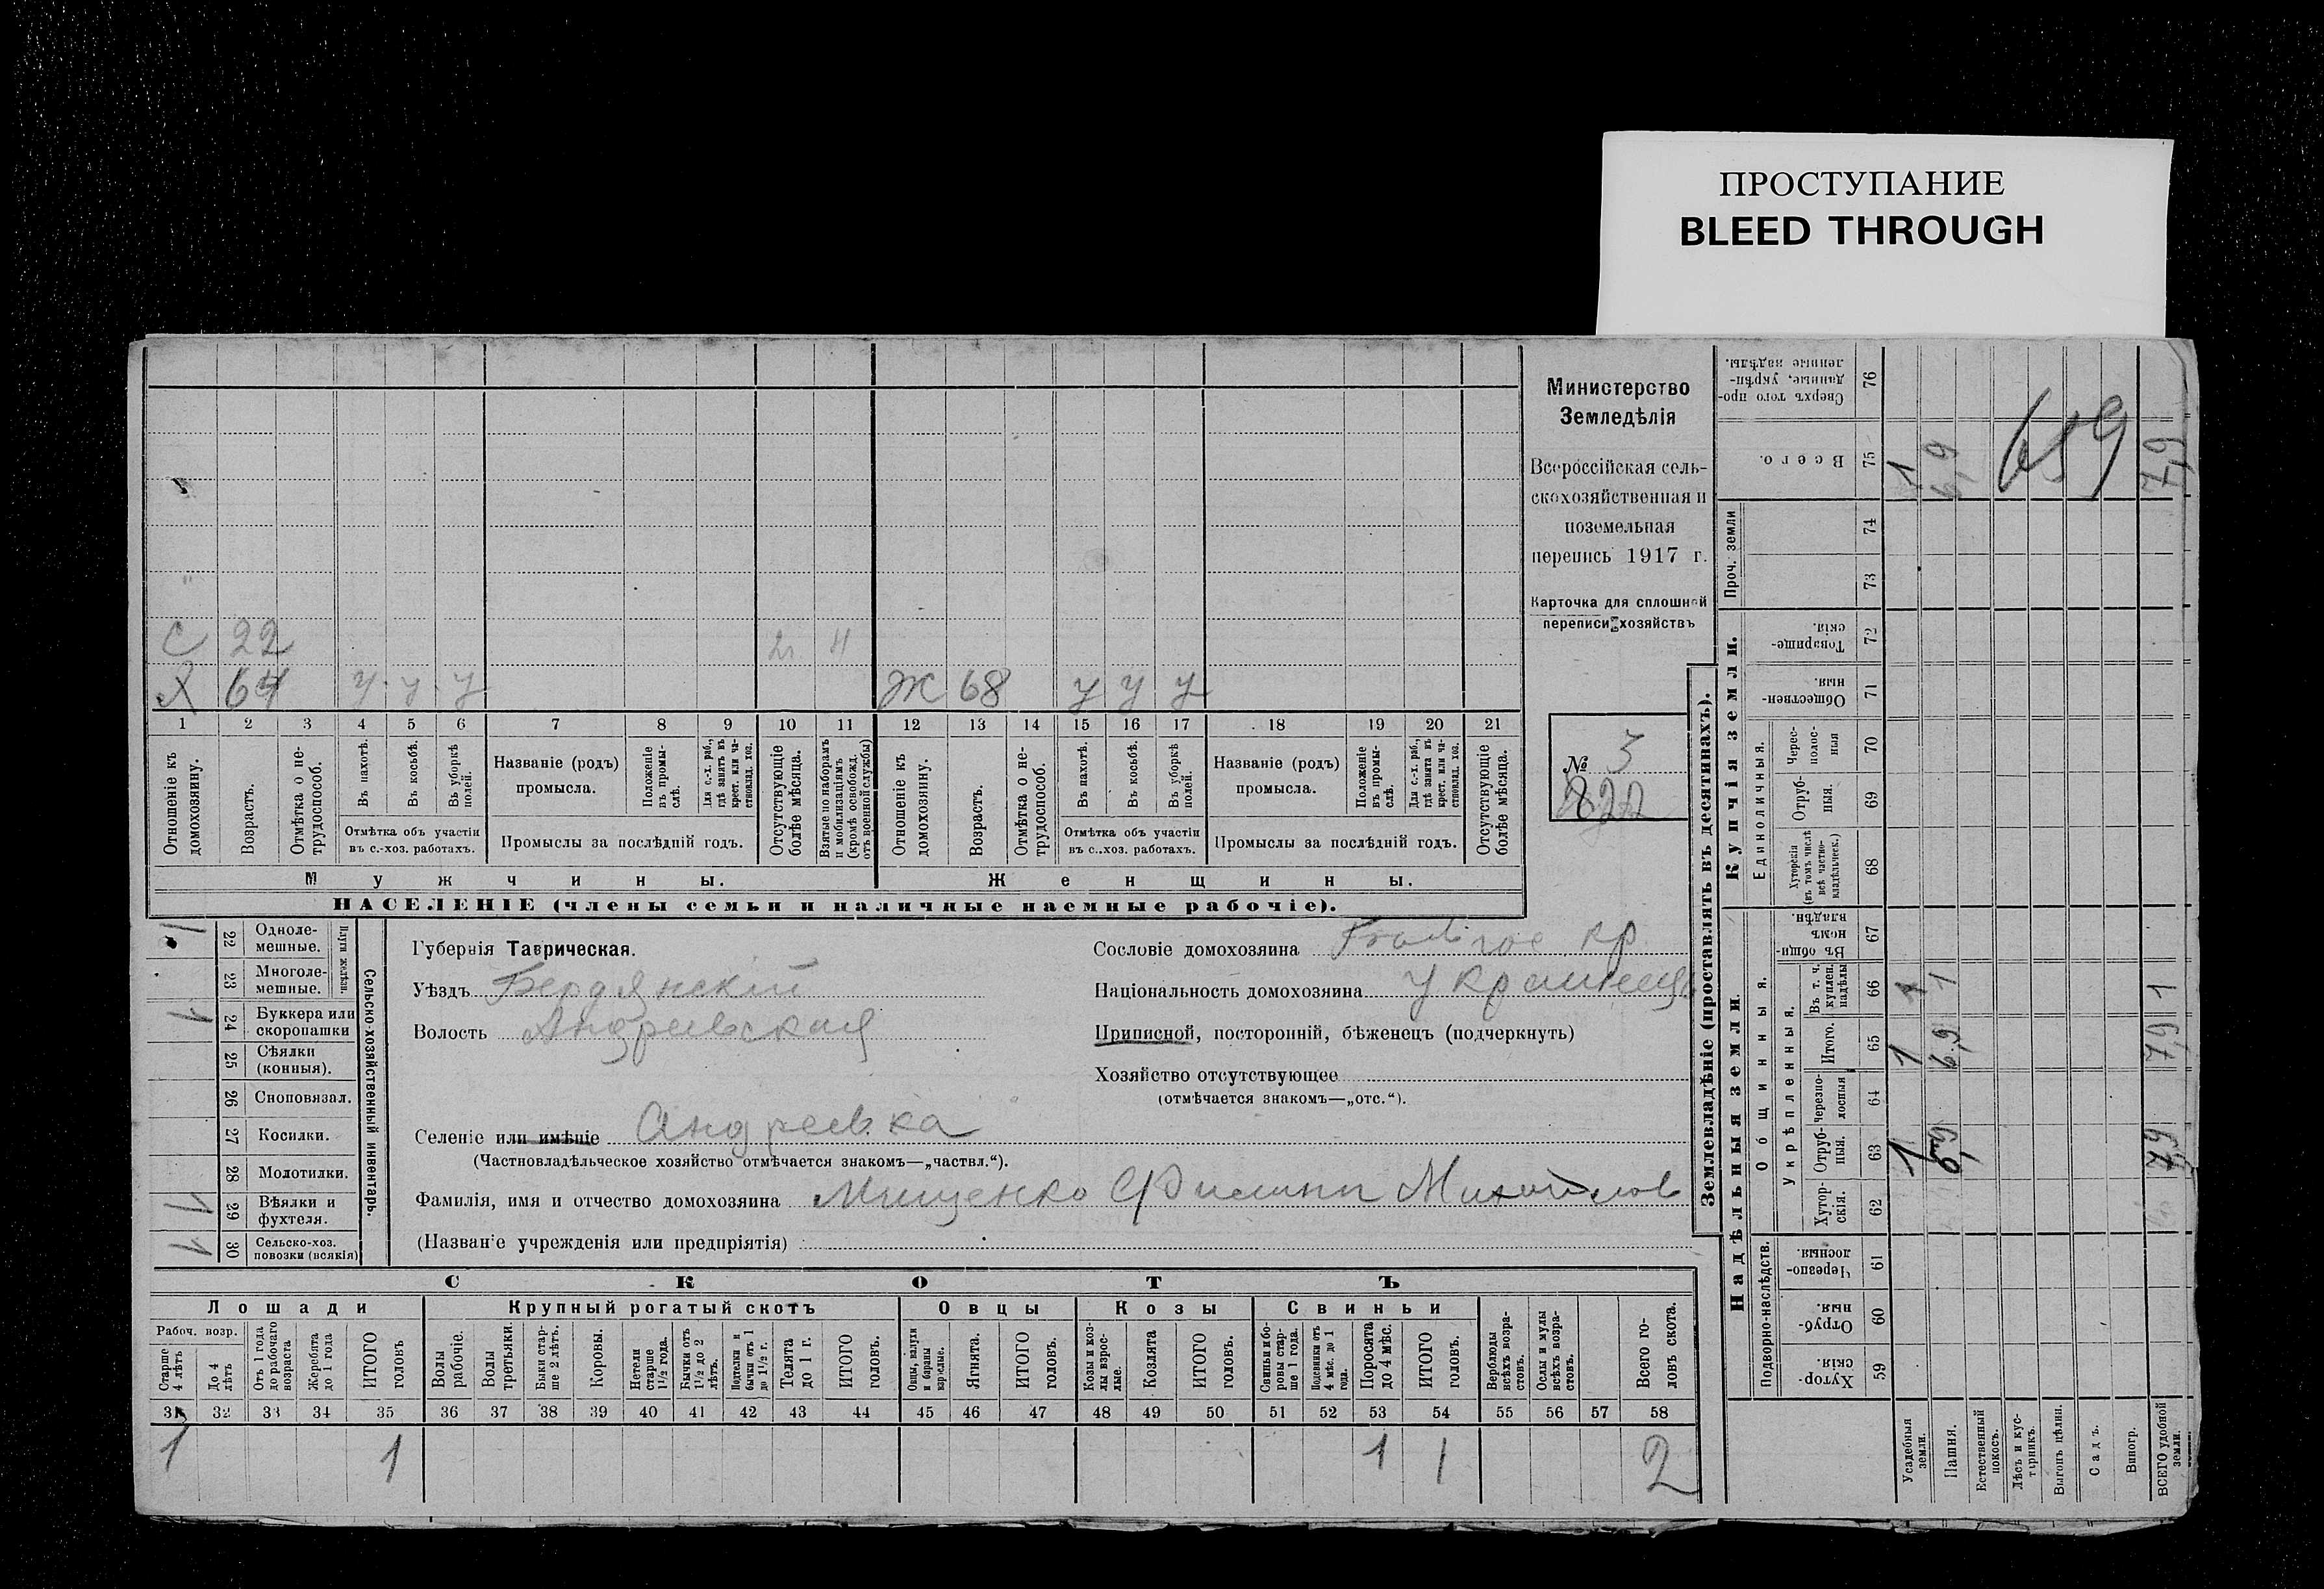 ПРОСТУПАНИЕ
BLEED THROUGH
Министерство
Земледѣлія
Всероссійская сель-
скохозяйственная и
поземельная
перепись 1917 г.
Карточка для сплошной
переписи хозяйствъ
№ 3
822
С 22 2г. Н
Х 64 у у у Ж 68 у у у
1 2 3 4 5 6 7 8 9 10 11 12 13 14 15 16 17 18 19 20 21
Отношеніе къ домохозяину.
Возрастъ.
Отмѣтка о не-трудоспособ.
Въ пахотѣ.
Въ косьбѣ.
Въ уборкѣ полей.
Отмѣтка объ участіи
въ с.-хоз. работахъ.
Названіе (родъ)
промысла.
Положеніе въ промы-слѣ.
Для с.-х. раб., гдѣ занятъ въ крест. или ча-стновлад. хоз.
Промыслы за послѣдній годъ.
Отсутствующіе болѣе мѣсяца.
Взятые по наборамъ и мобилизаціямъ (кромѣ освобожд. отъ военной службы)
Отношеніе къ домохозяину.
Возрастъ.
Отмѣтка о не-трудоспособ.
Въ пахотѣ.
Въ косьбѣ.
Въ уборкѣ полей.
Отмѣтка объ участіи
въ с..хоз. работахъ.
Названіе (родъ)
промысла.
Положеніе въ промы-слѣ.
Для с.-х. раб., гдѣ занята въ крест. или ча-стновлад. хоз.
Промыслы за послѣдній годъ.
Отсутствующіе болѣе мѣсяца.
Мужчины. Женщины.
НАСЕЛЕНІЕ (члены семьи и наличные наемные рабочіе).
22 Одноле-мешные.
23 Многоле-мешные.
Плуги желѣзн.
24 Буккера или скоропашки 1
25 Сѣялки (конныя).
26 Сноповязал.
27 Косилки.
28 Молотилки.
29 Вѣялки и фухтеля. 1
30 Сельско-хоз. повозки (всякія) 1
Сельско-хозяйственный инвентарь.
Губернія Таврическая.
Уѣздъ Бердянскій
Волость Андреевская
Селеніе или имѣніе Андреевка
(Частновладѣльческое хозяйство отмѣчается знакомъ—„частвл.“).
Фамилія, имя и отчество домохозяина Мищенко Филипп Михайлов
(Названіе учрежденія или предпріятія)
Сословіе домохозяина кр
Національность домохозяина украинецъ
Приписной, посторонній, бѣженецъ (подчеркнуть)
Хозяйство отсутствующее
(отмѣчается знакомъ—„отс.“).
СКОТЪ
Лошади Крупный рогатый скотъ Овцы Козы Свиньи
Рабоч. возр.
Старше 4 лѣтъ
До 4 лѣтъ
Отъ 1 года до рабочаго возраста
Жеребята до 1 года
ИТОГО головъ
Волы рабочіе.
Волы третьяки.
Быки стар-ше 2 лѣтъ.
Коровы.
Нетели старше 1½ года.
Бычки отъ 1½ до 2 лѣтъ.
Подтелки и бычки отъ 1 до 1½ г.
Телята до 1 г.
ИТОГО головъ.
Овцы, валухи и бараны взрослые.
Ягнята.
ИТОГО головъ.
Козы и коз-лы взрос-лые.
Козлята
ИТОГО головъ.
Свиньи и бо-ровы стар-ше 1 года.
Подсвинки отъ 4 мѣс. до 1 года.
Поросята до 4 мѣс.
ИТОГО головъ.
Верблюды всѣхъ возра-стовъ.
Ослы и мулы всѣхъ возра-стовъ.
Всего го-ловъ скота.
31 32 33 34 35 36 37 38 39 40 41 42 43 44 45 46 47 48 49 50 51 52 53 54 55 56 57 58
1 1 1 1 2
Землевладѣніе (проставлять въ десятинахъ).
Надѣльныя земли.
Купчія земли.
Проч. земли
Подворно-наслѣдств.
Общинныя.
Укрѣпленныя.
Единоличныя.
Хутор-скія. 59
Отруб-ныя. 60
Черезпо-лосныя. 61
Хутор-скія. 62
Отруб-ныя. 63
Черезпо-лосныя 64
Итого. 65
Въ т. ч. куплен. надѣлы 66
Въ общи-номъ владѣн. 67
Хуторскія (въ томъ числѣ всѣ частно-владѣльческ.) 68
Отруб-ныя. 69
Черес-полос-ныя 70
Обществен-ныя. 71
Товарище-скія. 72
73
74
Всего. 75
Сверхъ того про-данные, укрѣп-ленные надѣлы. 76
Усадебныя земли. 1 1 1 1
Пашня. 6,9 6,9 1 6,9
Естественный покосъ.
Лѣсъ и кус-тарникъ.
Выгонъ цѣлин.
Садъ.
Виногр.
ВСЕГО удобной земли. 7,9 7,9 1 7,9
659